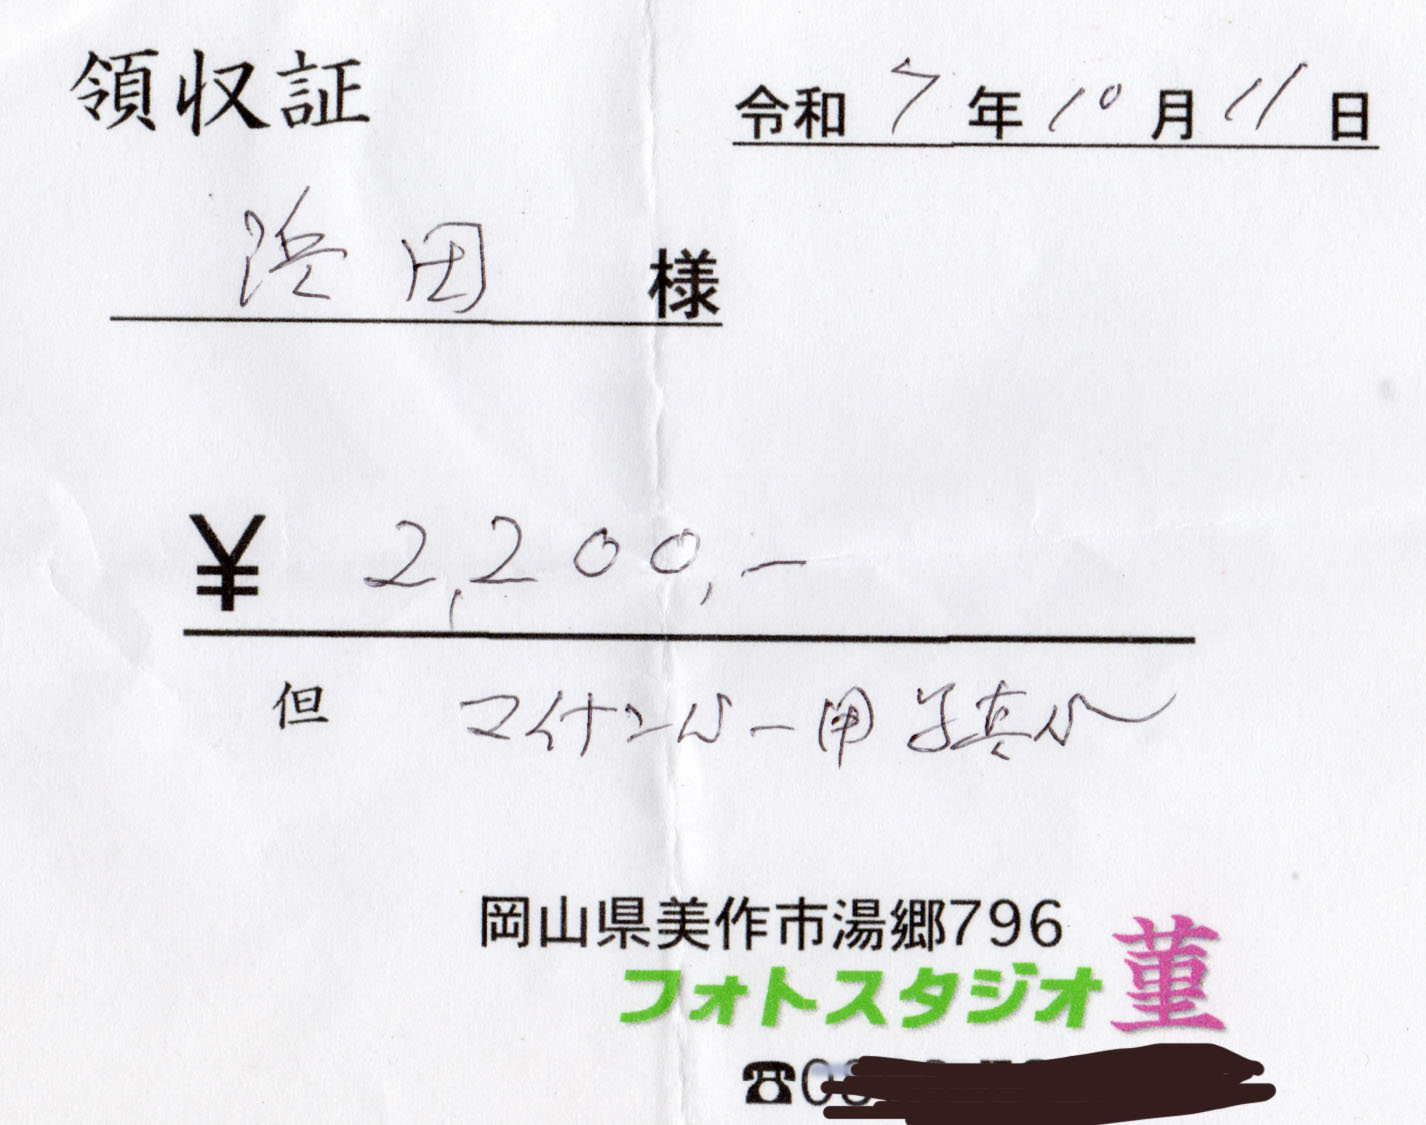 領収証
令和 7 年 10 月 11 日
浜田 様
¥ 2,200,-
但 マイナンバー用写真代
岡山県美作市湯郷796
フォトスタジオ菫
☎0